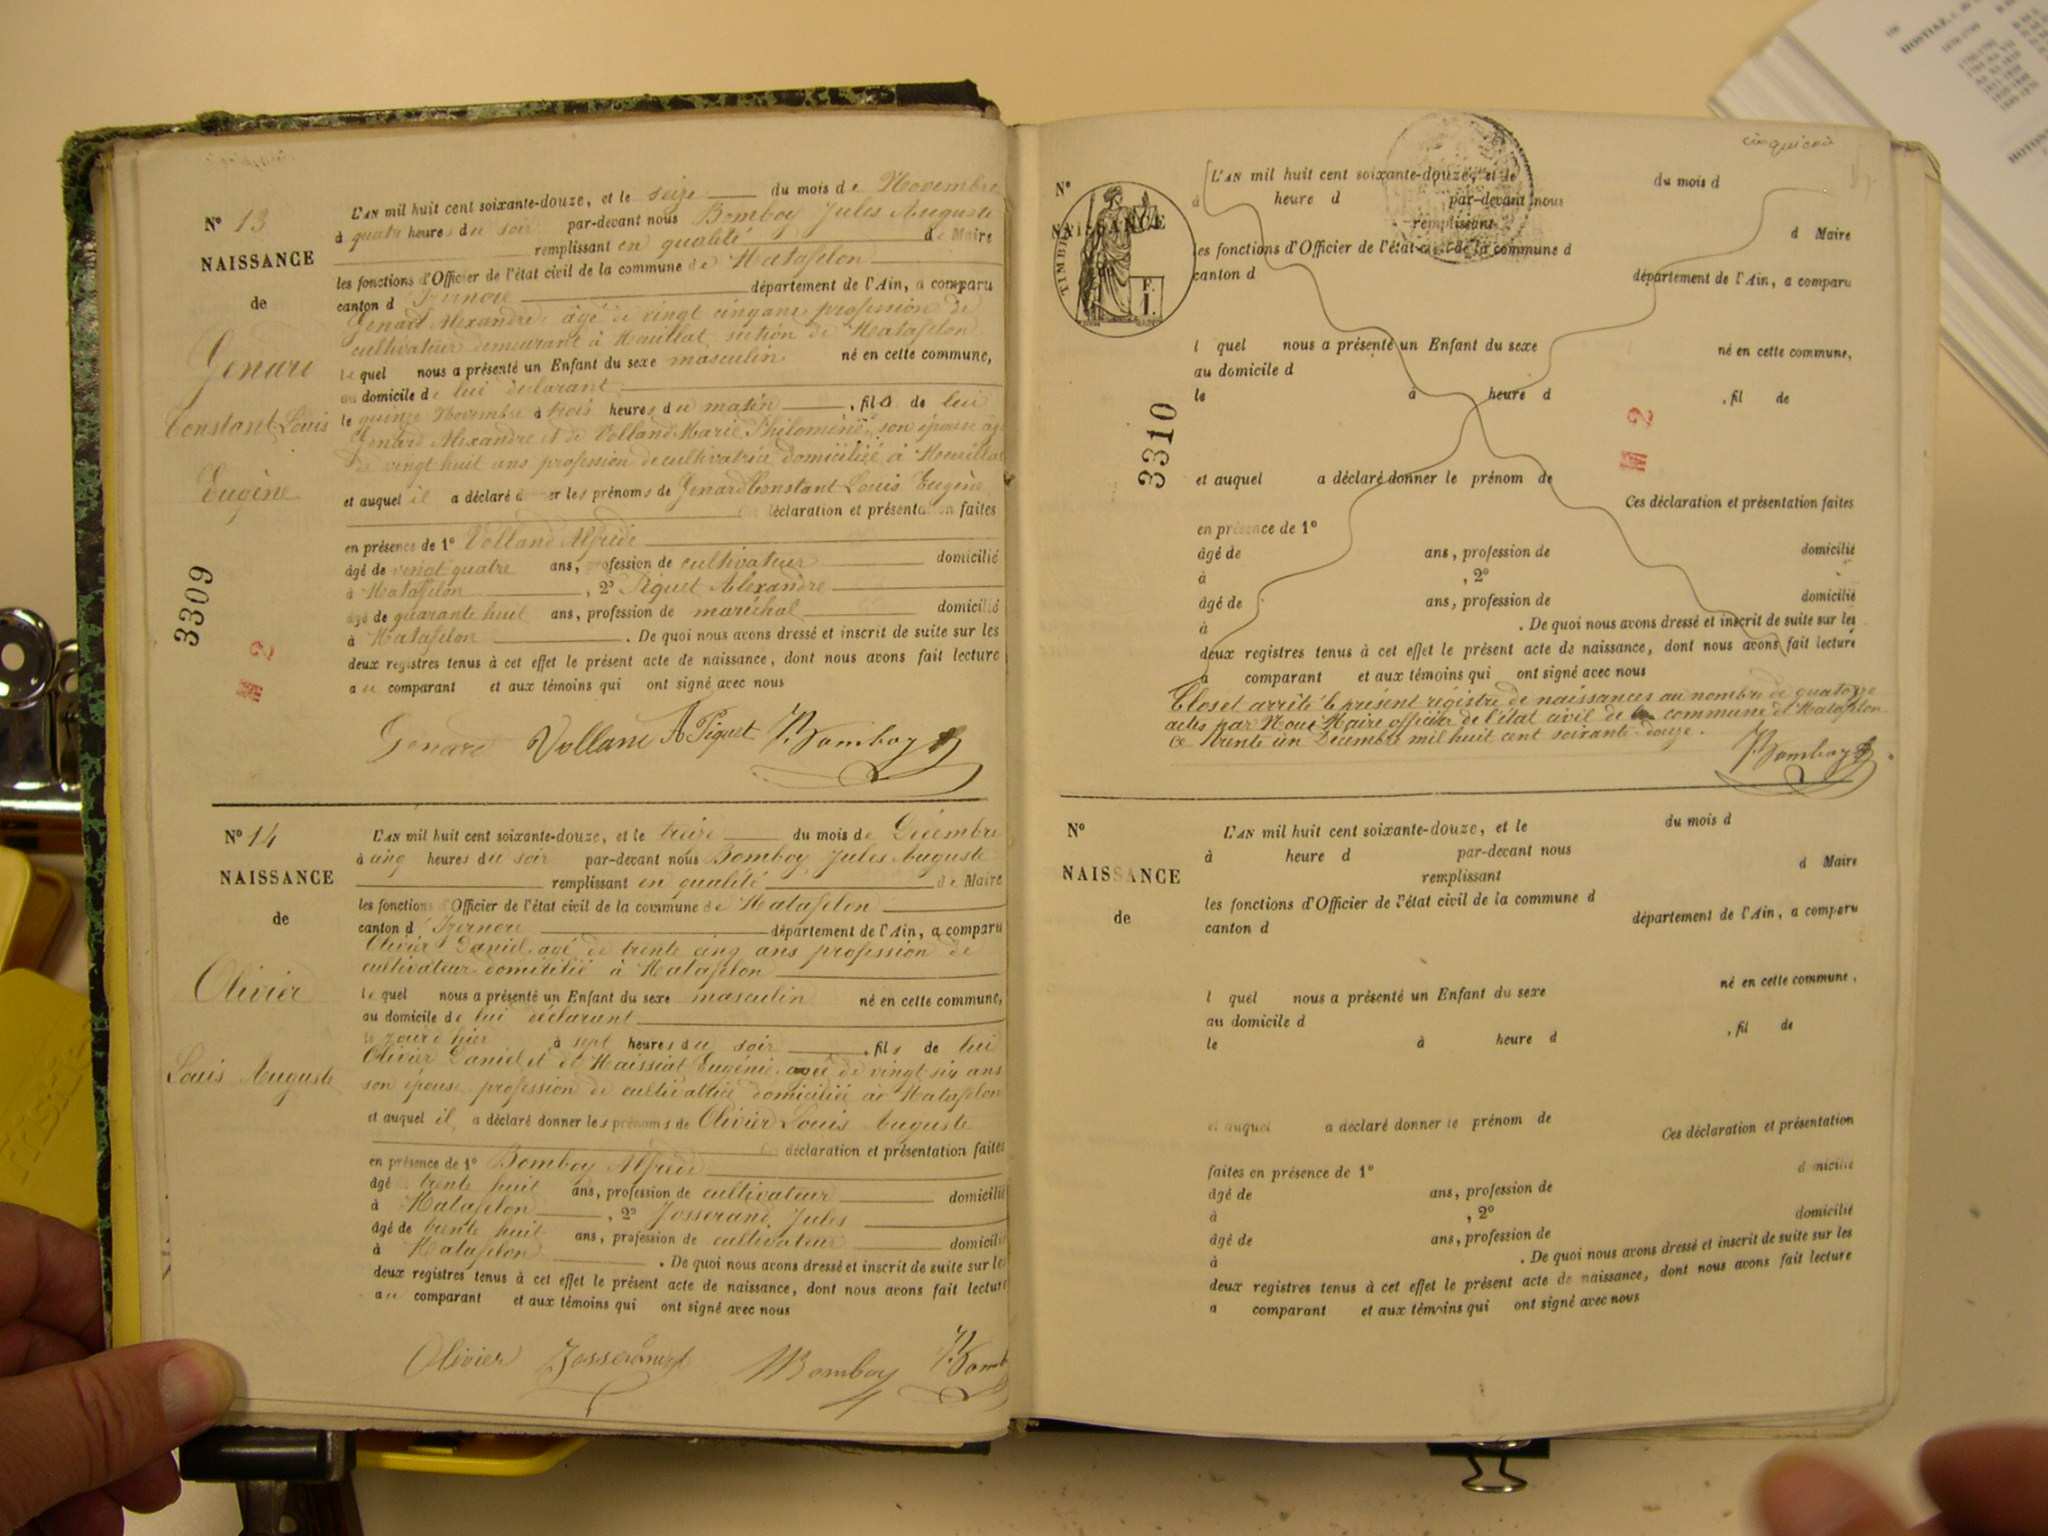 N° 13
NAISSANCE
de
Genard
Constant Louis
Eugène
3309
M 2
L'AN mil huit cent soixante-douze, et le seize du mois de Novembre
à quatre heures du soir par-devant nous Bomboy Jules Auguste
remplissant en qualité de Maire
les fonctions d'Officier de l'état civil de la commune de Matafelon
canton d'Izernore département de l'Ain, a comparu
Genard Alexandre, âgé de vingt cinq ans profession de
cultivateur demeurant à section de Matafelon
le quel nous a présenté un Enfant du sexe masculin né en cette commune,
au domicile de lui déclarant
le quinze Novembre à trois heures du matin , fils de lui
Genard Alexandre et de Volland Marie Philomène, son épouse
de vingt huit ans profession de cultivatrice domiciliée à
et auquel il a déclaré donner les prénoms de Genard Constant Louis Eugène
déclaration et présentation faites
en présence de 1° Volland Alfred
âgé de vingt quatre ans, profession de cultivateur domicilié
à Matafelon , 2° Piquet Alexandre
âgé de quarante huit ans, profession de maréchal domicilié
à Matafelon . De quoi nous avons dressé et inscrit de suite sur les
deux registres tenus à cet effet le présent acte de naissance, dont nous avons fait lecture
au comparant et aux témoins qui ont signé avec nous
Genard Volland A Piquet J. Bomboy
N° 14
NAISSANCE
de
Olivier
Louis Auguste
L'AN mil huit cent soixante-douze, et le treize du mois de Décembre
à cinq heures du soir par-devant nous Bomboy Jules Auguste
remplissant en qualité de Maire
les fonctions d'Officier de l'état civil de la commune de Matafelon
canton d'Izernore département de l'Ain, a comparu
Olivier Daniel agé de trente cinq ans profession de
cultivateur domicilié à Matafelon
le quel nous a présenté un Enfant du sexe masculin né en cette commune,
au domicile de lui déclarant
le jour d'hier à sept heures du soir , fils de lui
Olivier Daniel et de Maissiat Eugénie agée de vingt six ans
son épouse profession de cultivatrice domiciliée à Matafelon
et auquel il a déclaré donner les prénoms de Olivier Louis Auguste
déclaration et présentation faites
en présence de 1° Bomboy Alfred
âgé trente huit ans, profession de cultivateur domicilié
à Matafelon , 2° Josserand Jules
âgé de trente huit ans, profession de cultivateur domicilié
à Matafelon . De quoi nous avons dressé et inscrit de suite sur les
deux registres tenus à cet effet le présent acte de naissance, dont nous avons fait lecture
au comparant et aux témoins qui ont signé avec nous
Olivier Josserand Bomboy J. Bomb
N°
NAISSANCE
TIMBRE
F. 1.
3310
M 2
L'AN mil huit cent soixante-douze, et le du mois d
à heure d par-devant nous
remplissant d Maire
les fonctions d'Officier de l'état civil de la commune d
canton d département de l'Ain, a comparu
l quel nous a présenté un Enfant du sexe né en cette commune,
au domicile d
le à heure d , fil de
et auquel a déclaré donner le prénom de
Ces déclaration et présentation faites
en présence de 1°
âgé de ans, profession de domicilié
à , 2°
âgé de ans, profession de domicilié
à . De quoi nous avons dressé et inscrit de suite sur les
deux registres tenus à cet effet le présent acte de naissance, dont nous avons fait lecture
a comparant et aux témoins qui ont signé avec nous
Clos et arrêté le présent régistre de naissances au nombre de quatorze
actes par Nous Maire officier de l'état civil de la commune de Matafelon
ce trente un Décembre mil huit cent soixante-douze.
J. Bomboy
N°
NAISSANCE
de
L'AN mil huit cent soixante-douze, et le du mois d
à heure d par-devant nous
remplissant d Maire
les fonctions d'Officier de l'état civil de la commune d
canton d département de l'Ain, a comparu
l quel nous a présenté un Enfant du sexe né en cette commune,
au domicile d
le à heure d , fil de
et auquel a déclaré donner le prénom de
Ces déclaration et présentation
faites en présence de 1° domicilié
âgé de ans, profession de
à , 2° domicilié
âgé de ans, profession de
à . De quoi nous avons dressé et inscrit de suite sur les
deux registres tenus à cet effet le présent acte de naissance, dont nous avons fait lecture
a comparant et aux témoins qui ont signé avec nous